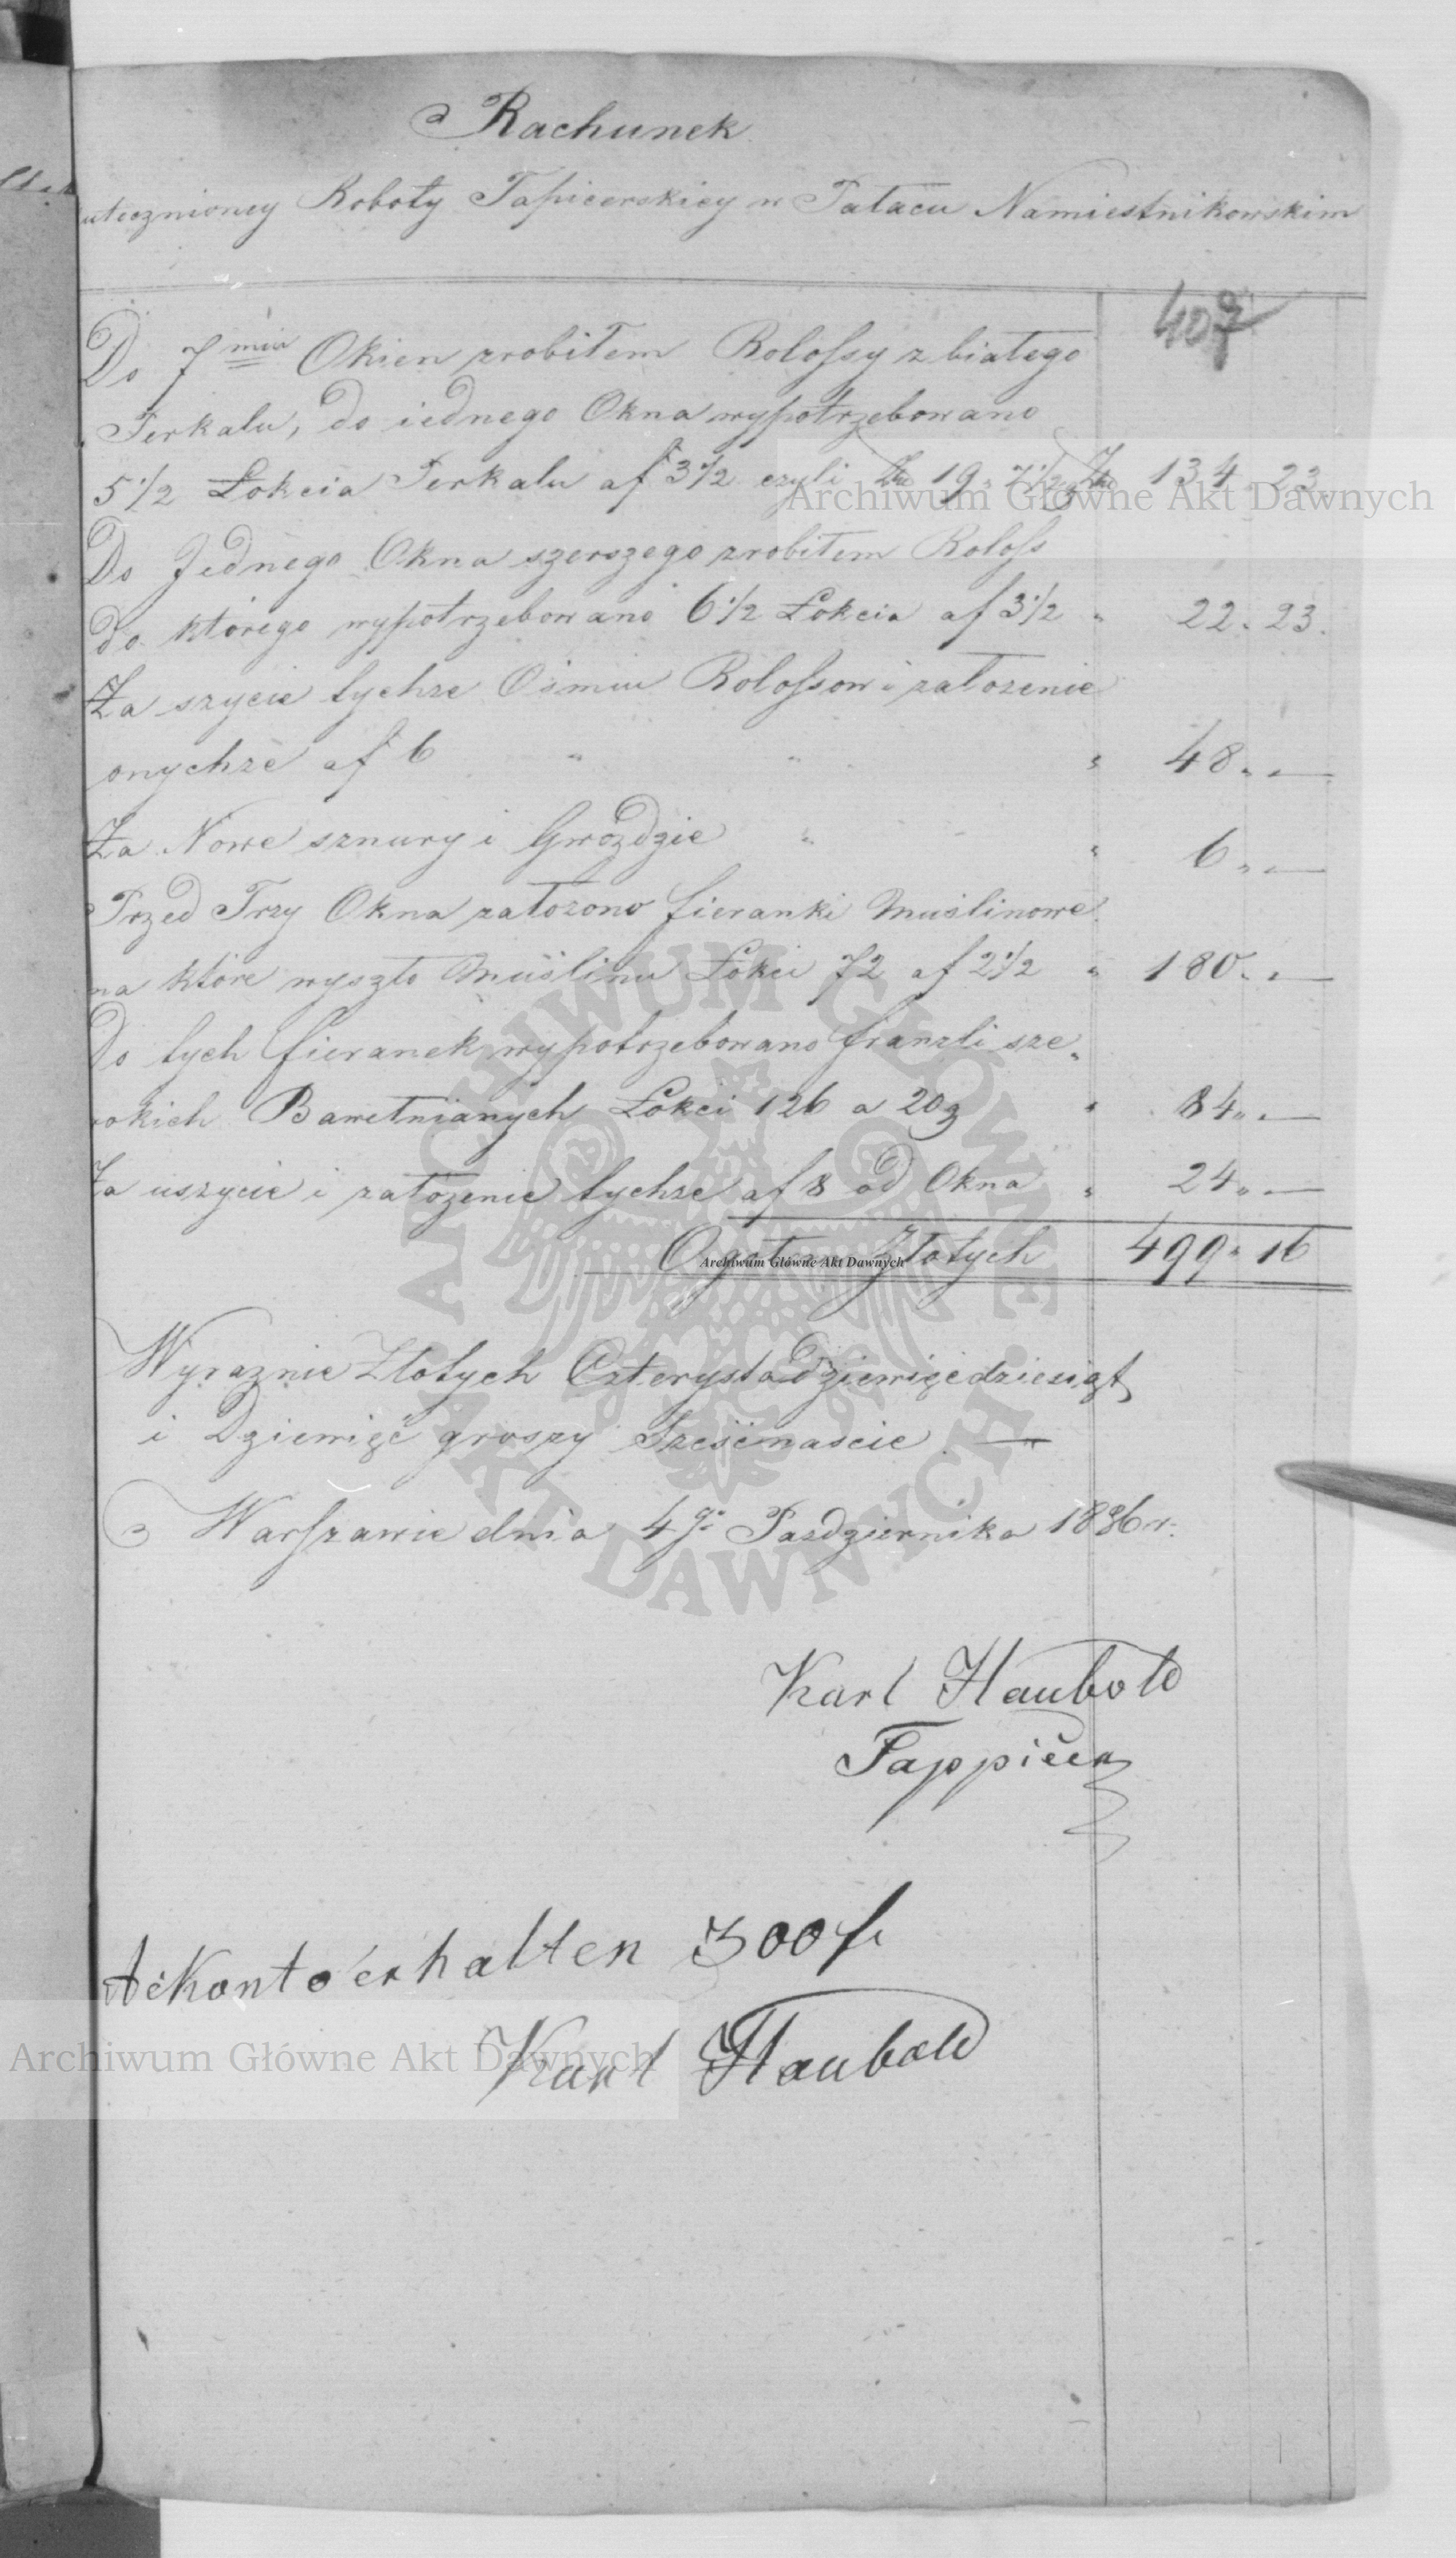 Rachunek
utecznioney Roboty Tapicerskiey w Pałacu Namiestnikowskim
407
Do 7miu Okien zrobiłem Rolossy z białego
Perkalu, do iednego Okna wypotrzebowano
5 1/2 Łokcia Perkalu af 3 1/2 czyli Złp 19 „ 7 1/2 Złp 134 „ 23
Do Jednego Okna szerszego zrobiłem Roloss
do którego wypotrzebowano 6 1/2 Łokcia af 3 1/2 „ 22 „ 23.
Za szycie tychże Ośmiu Rolossow i założenie
onychże af 6 „ „ „ 48 „ —
Za Nowe sznury i Gwoździe „ „ 6 „ —
Przed Trzy Okna założono firanki Muślinowe
na które wyszło Muślinu Łokci 72 af 2 1/2 „ 180 „ —
Do tych firanek wypotrzebowano franzli sze„
rokich Bawełnianych Łokci 126 a 20 g „ 84 „ —
Za uszycie i założenie tychże af 8 od Okna „ 24 „ —
Ogół Złotych 499 „ 16
Wyraznie Złotych Czterysta Dziewięcdziesiąt
i Dziewięć groszy Sześćnaście. —
Warszawie dnia 4go Pazdziernika 1836 r.
Karl Haubold
Tappicer
AcKonto erhalten 300 f
Karl Haubold
Archiwum Główne Akt Dawnych
Archiwum Główne Akt Dawnych
Archiwum Główne Akt Dawnych
ARCHIWUM GŁÓWNE AKT DAWNYCH